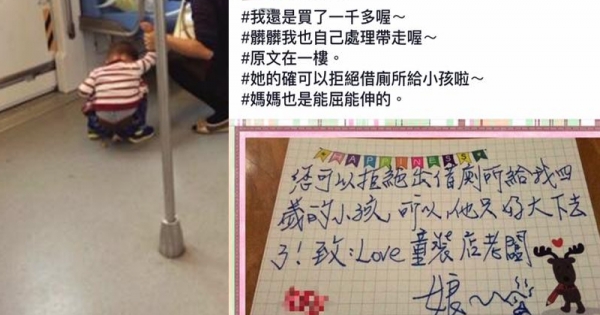 #我還是買了一千多喔～
#髒髒我也自己處理帶走喔～
#原文在一樓。
#她的確可以拒絕借廁所給小孩啦～
#媽媽也是能屈能伸的。
HAPPINESS
您可以拒絕出借廁所給我四
歲的小孩，所以他只好大下去
了！致：Love 童裝店老闆
娘～